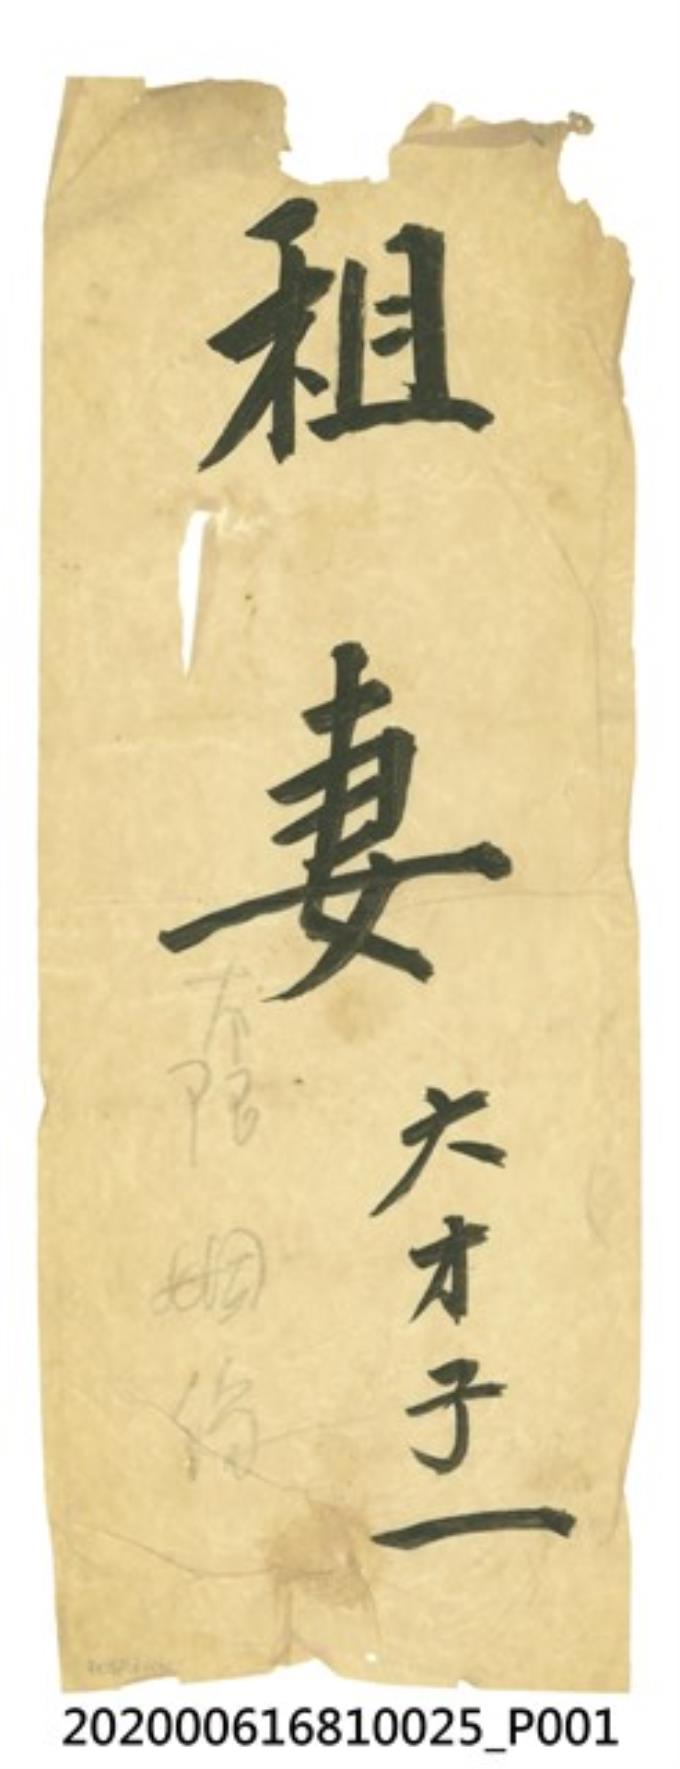 租妻
大才子一
大限
姻份
202000616810025_P001